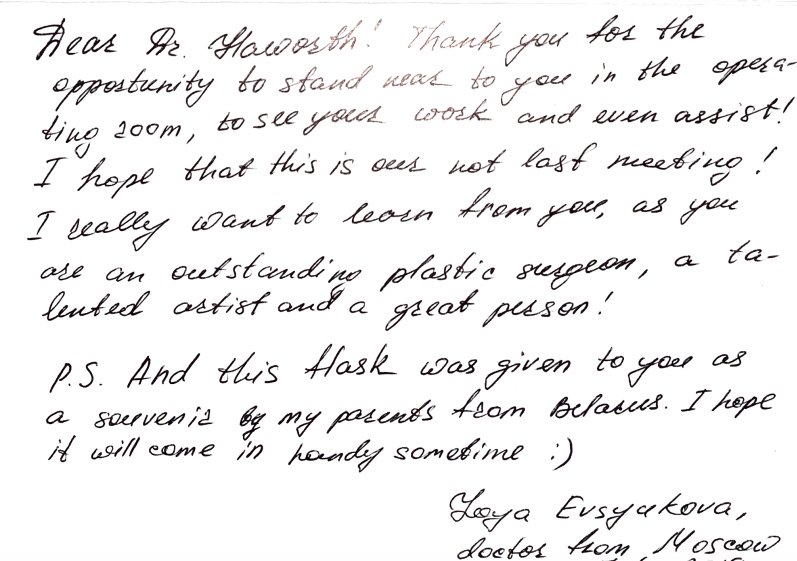 Dear Dr. Haworth! Thank you for the
opportunity to stand near to you in the opera-
ting room, to see your work and even assist!
I hope that this is our not last meeting!
I really want to learn from you, as you
are an outstanding plastic surgeon, a ta-
lented artist and a great person!
P.S. And this flask was given to you as
a souvenir by my parents from Belarus. I hope
it will come in handy sometime :)
Zoya Evsyukova,
doctor from Moscow